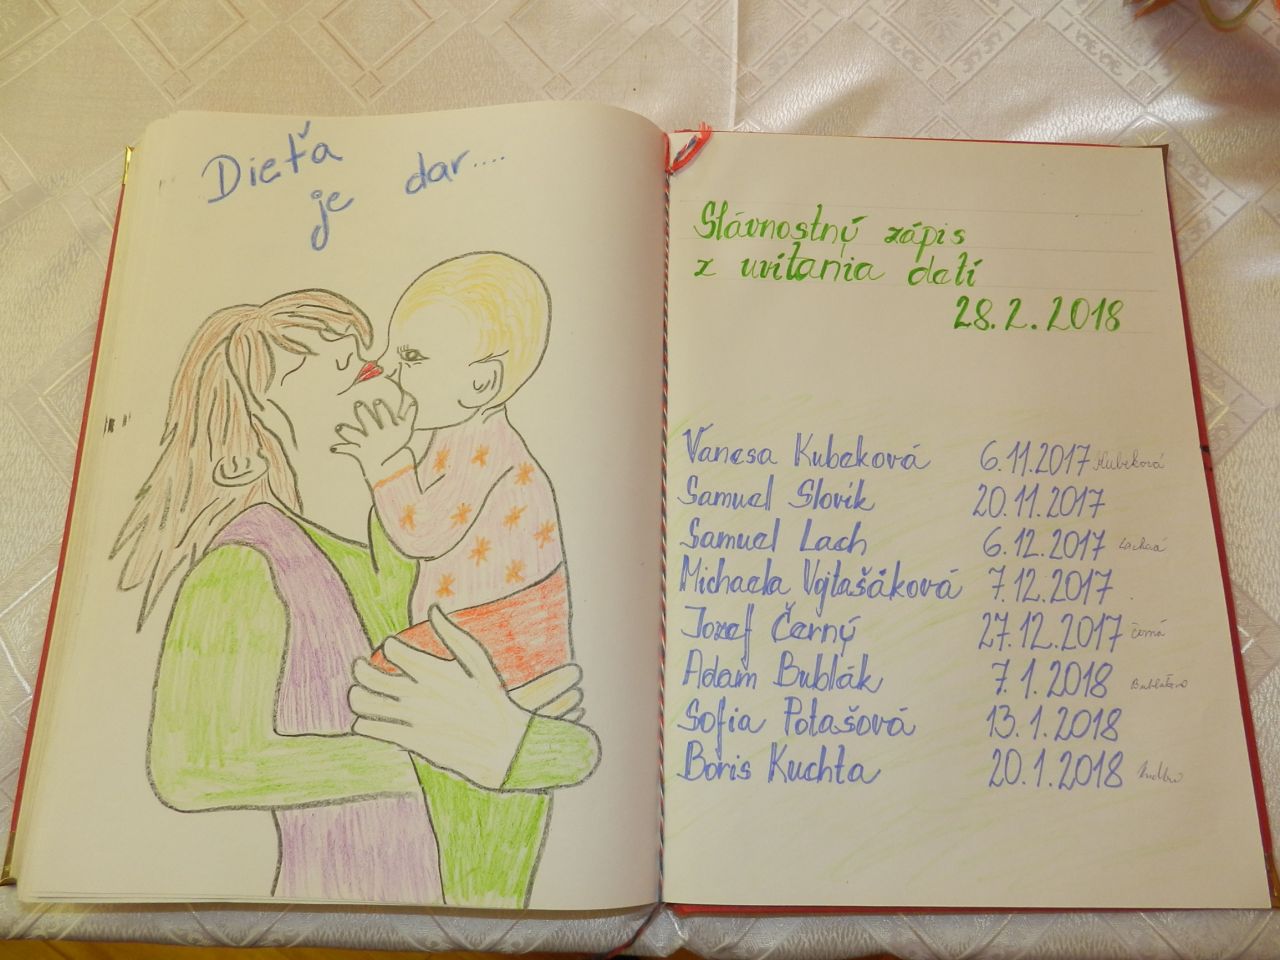 Dieťa
je dar....
Slávnostný zápis
z uvítania detí
28.2.2018
Vanesa Kubeková 6.11.2017 Kubeková
Samuel Slovik 20.11.2017
Samuel Lach 6.12.2017
Michaela Vojtašáková 7.12.2017
Jozef Černý 27.12.2017 Černá
Adam Bublák 7.1.2018
Sofia Potašová 13.1.2018
Boris Kuchta 20.1.2018